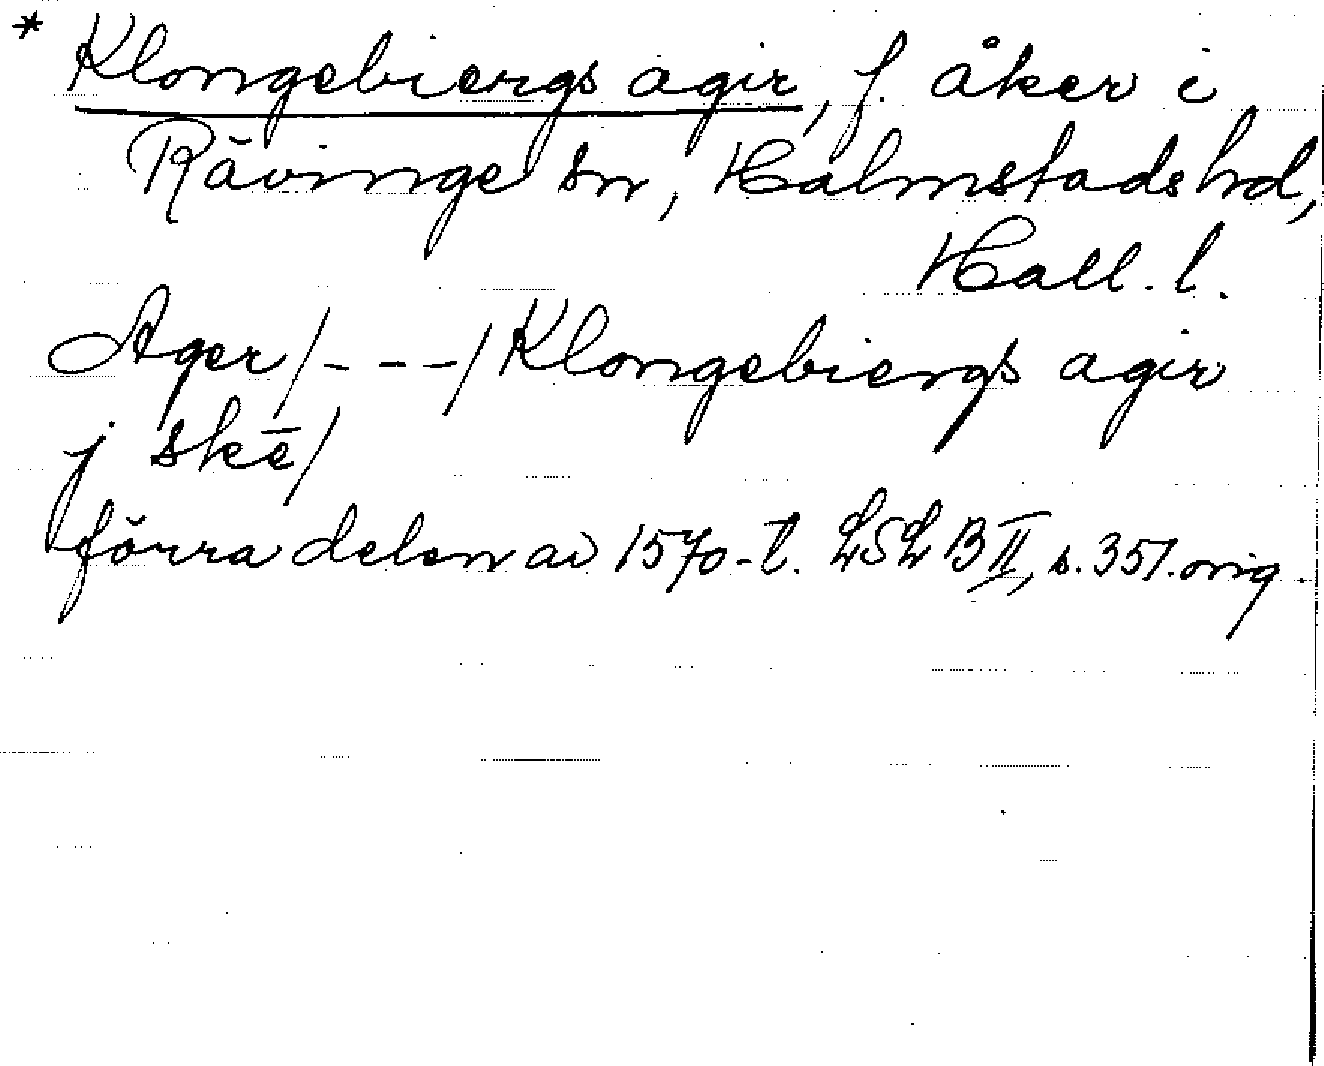 * Klongebiergs agir, f. åker i
Rävinge sn, Halmstads hd,
Hall. l.
Ager/---/Klongebiergs agir
j skē/
förra delen av 1570-t. LSL B II, s. 351. orig.